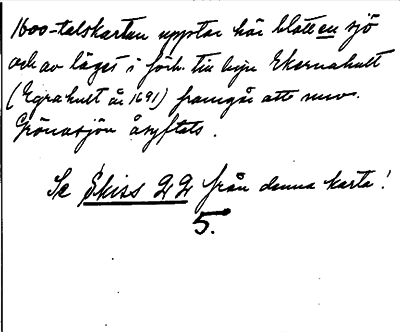 1600-talskartan upptar här blott en sjö
och av läget i förh. till byn Ekornahult
(Egrahult år 1691) framgår att nuv.
Grönasjön åsyftats.
Se Skiss 22 från denna karta!
5.